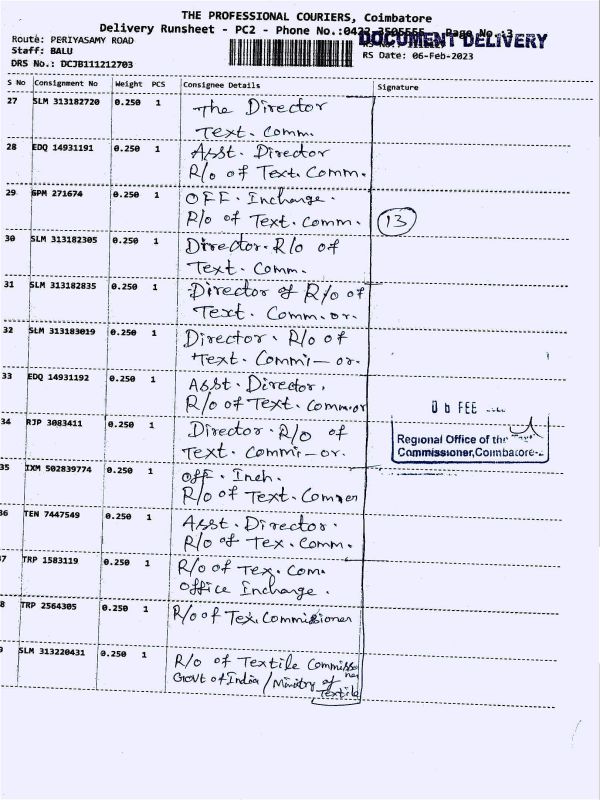 THE PROFESSIONAL COURIERS, Coimbatore
Delivery Runsheet - PC2 - Phone No.:0422 3505555 Page No.:3
DOCUMENT DELIVERY
Route: PERIYASAMY ROAD
Staff: BALU
RS Date: 06-Feb-2023
DRS No.: DCJB111212703
S No Consignment No Weight PCS Consignee Details Signature
27 SLM 313182720 0.250 1 The Director
Text. Comm.
28 EDQ 14931191 0.250 1 Asst. Director
R/o of Text. Comm.
29 GPM 271674 0.250 1 OFF. Incharge.
R/o of Text. Comm. 13
30 SLM 313182305 0.250 1 Director. R/o of
Text. Comm.
31 SLM 313182835 0.250 1 Director of R/o of
Text. Comm. or.
32 SLM 313183019 0.250 1 Director. R/o of
Text. Commi - or.
33 EDQ 14931192 0.250 1 Asst. Director.
R/o of Text. Comm.or
34 RJP 3083411 0.250 1 Director. R/o of
Text. Commi - or.
35 IXM 502839774 0.250 1 Off. Inch.
R/o of Text.
36 TEN 7447549 0.250 1 Asst. Director.
R/o of Tex. Comm.
7 TRP 1583119 0.250 1 R/o of Tex. Com.
Office Incharge.
8 TRP 2564305 0.250 1 R/o of Tex. Commissioner
SLM 313220431 0.250 1 R/o of Textile Commissioner
Govt of India / Ministry of
Textile
0 6 FEE
Regional Office of the
Commissioner, Coimbatore-2